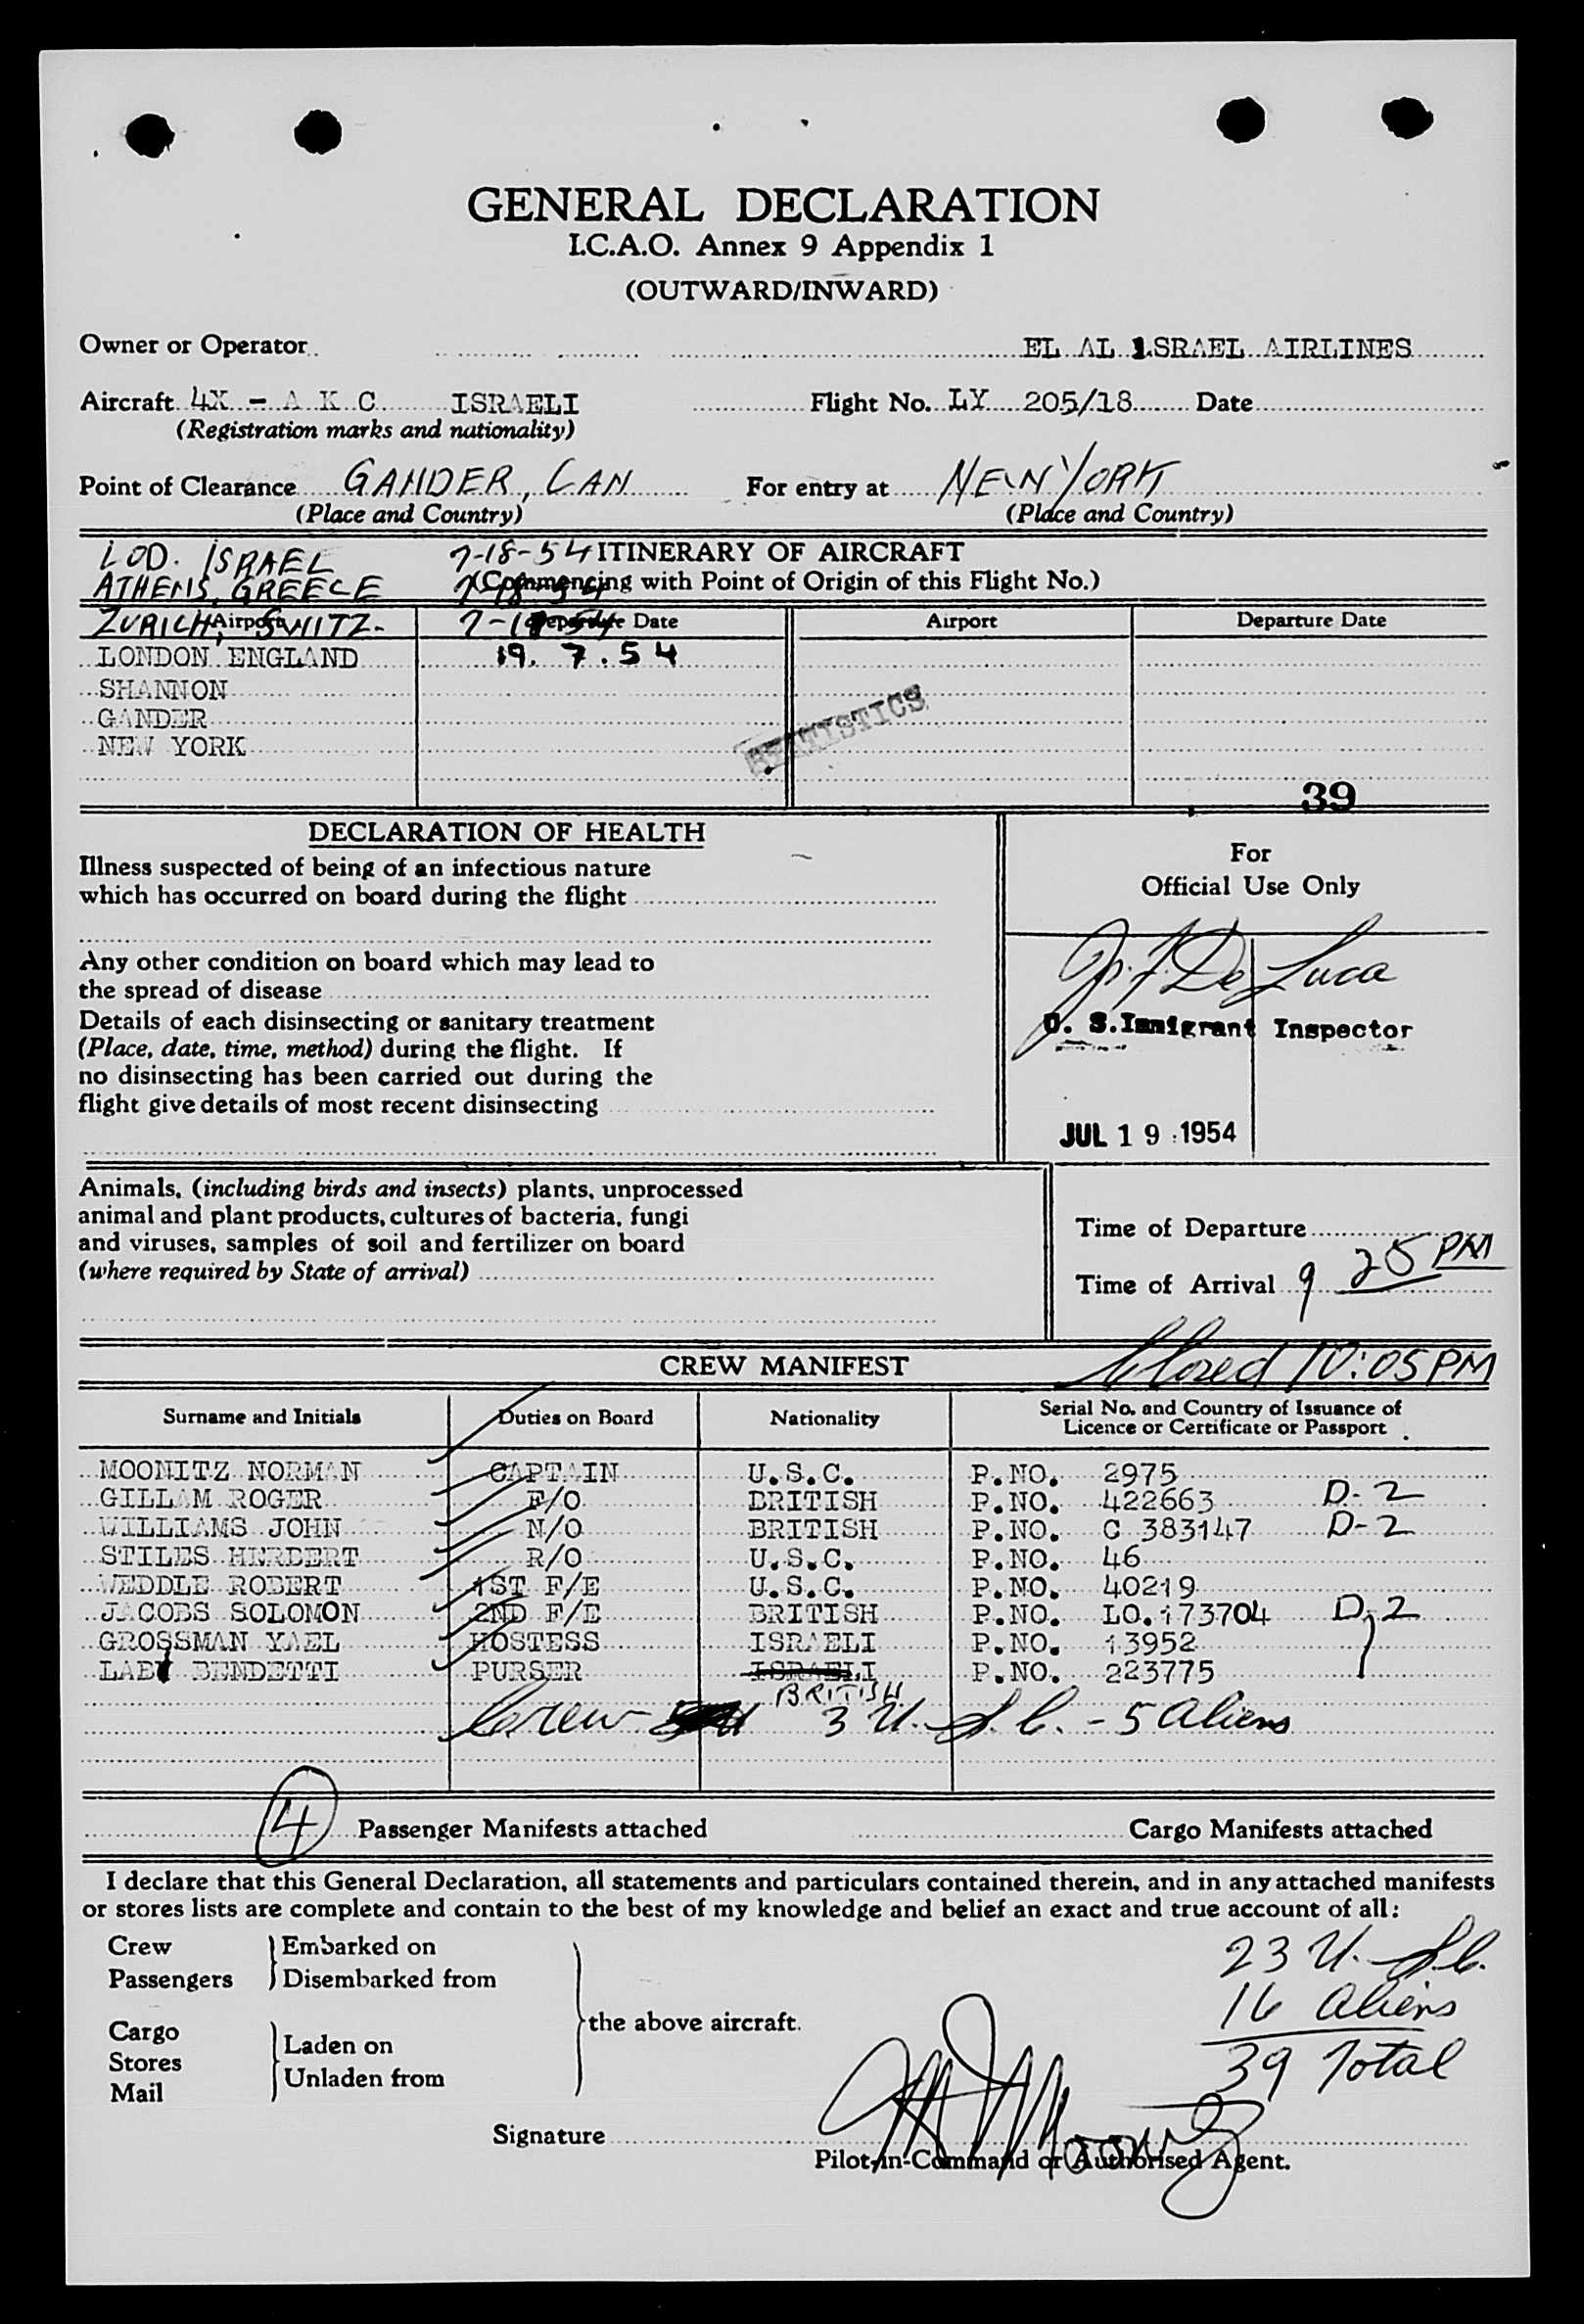 GENERAL DECLARATION
I.C.A.O. Annex 9 Appendix 1
(OUTWARD/INWARD)
Owner or Operator EL AL ISRAEL AIRLINES
Aircraft 4X - A K C ISRAELI Flight No. LY 205/18 Date
(Registration marks and nationality)
Point of Clearance GANDER, CAN For entry at NEW YORK
(Place and Country) (Place and Country)
LOD. ISRAEL 7-18-54 ITINERARY OF AIRCRAFT
ATHENS, GREECE (Commencing with Point of Origin of this Flight No.)
Airport Departure Date Airport Departure Date
ZURICH, SWITZ-
LONDON ENGLAND 19. 7. 54
SHANNON
GANDER
NEW YORK
STATISTICS
39
DECLARATION OF HEALTH
Illness suspected of being of an infectious nature
which has occurred on board during the flight
Any other condition on board which may lead to
the spread of disease
Details of each disinsecting or sanitary treatment
(Place, date, time, method) during the flight. If
no disinsecting has been carried out during the
flight give details of most recent disinsecting
For
Official Use Only
De Luca
U. S. Immigrant Inspector
JUL 19 1954
Animals, (including birds and insects) plants, unprocessed
animal and plant products, cultures of bacteria, fungi
and viruses, samples of soil and fertilizer on board
(where required by State of arrival)
Time of Departure
Time of Arrival 9 25 PM
CREW MANIFEST Closed 10:05 PM
Surname and Initials Duties on Board Nationality Serial No. and Country of Issuance of
Licence or Certificate or Passport
MOONITZ NORMAN CAPTAIN U.S.C. P.NO. 2975
GILLAM ROGER F/O BRITISH P.NO. 422663 D-2
WILLIAMS JOHN N/O BRITISH P.NO. C 383147 D-2
STILES HERBERT R/O U.S.C. P.NO. 46
WEDDLE ROBERT 1ST F/E U.S.C. P.NO. 40219
JACOBS SOLOMON 2ND F/E BRITISH P.NO. LO.173704 D-2
GROSSMAN YAEL HOSTESS ISRAELI P.NO. 13952
BENDETTI PURSER ISRAELI P.NO. 223775
BRITISH
Crew 3 U.S.C. - 5 aliens
4 Passenger Manifests attached Cargo Manifests attached
I declare that this General Declaration, all statements and particulars contained therein, and in any attached manifests
or stores lists are complete and contain to the best of my knowledge and belief an exact and true account of all:
Crew Embarked on
Passengers Disembarked from
the above aircraft.
Cargo
Stores
Mail
Laden on
Unladen from
23 U.S.C.
16 aliens
39 Total
Signature N Moonitz
Pilot-in-Command or Authorised Agent.